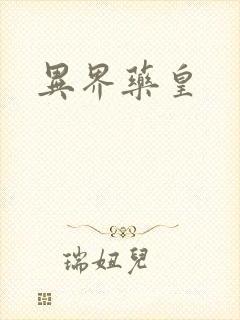 異界藥皇
瑞妞兒